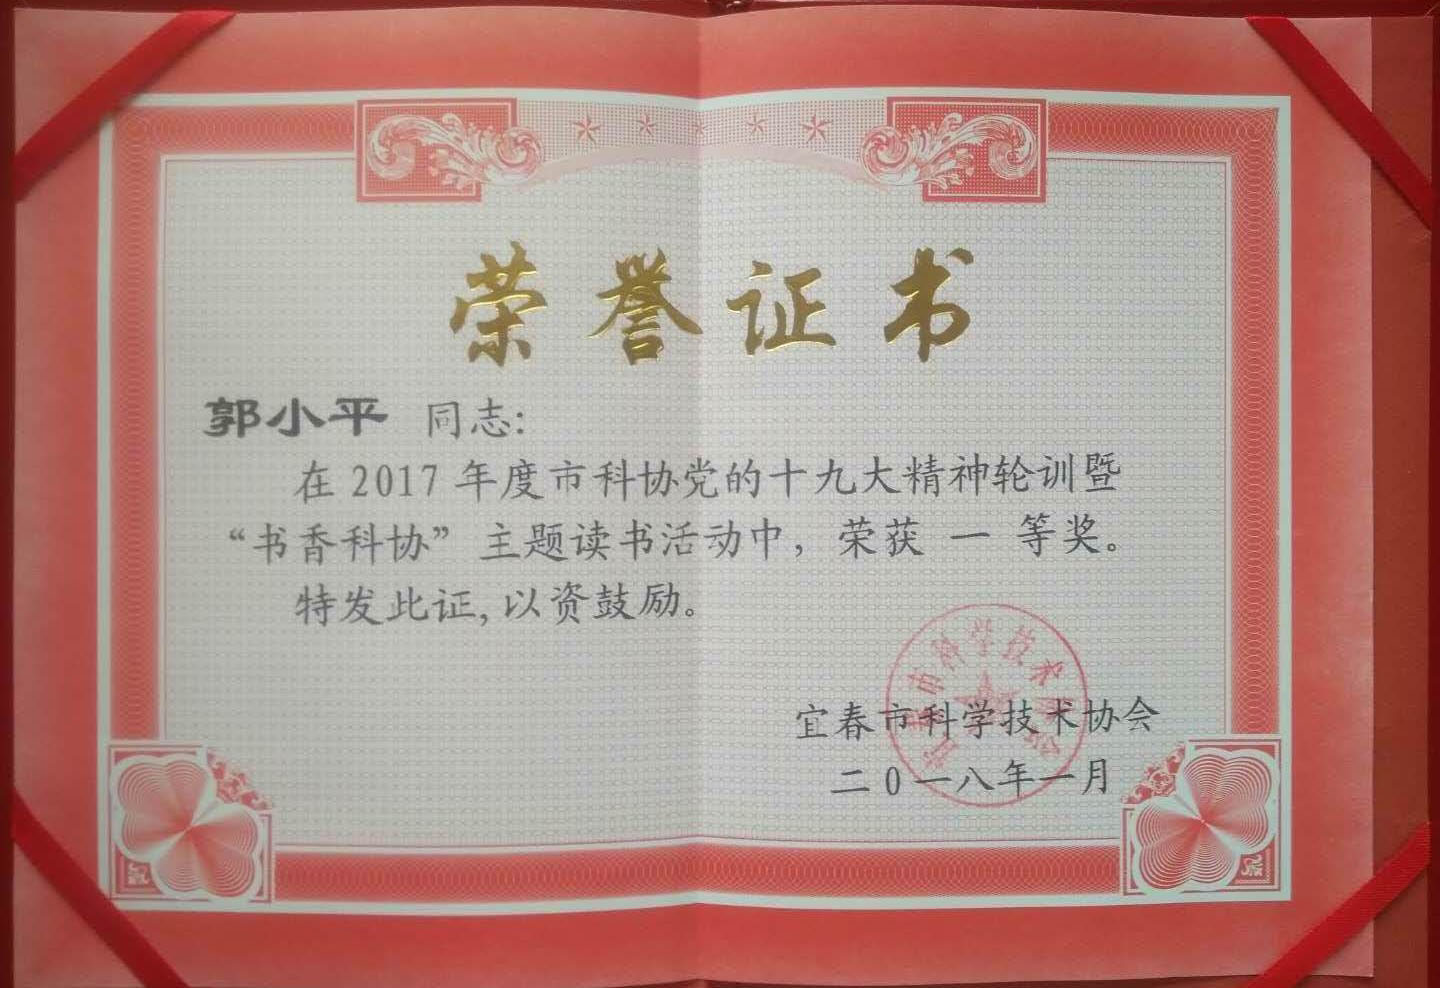 荣誉证书
郭小平 同志:
在 2017 年度市科协党的十九大精神轮训暨
“书香科协” 主题读书活动中，荣获 一 等奖。
特发此证, 以资鼓励。
宜春市科学技术协会
宜春市科学技术协会
二0一八年一月